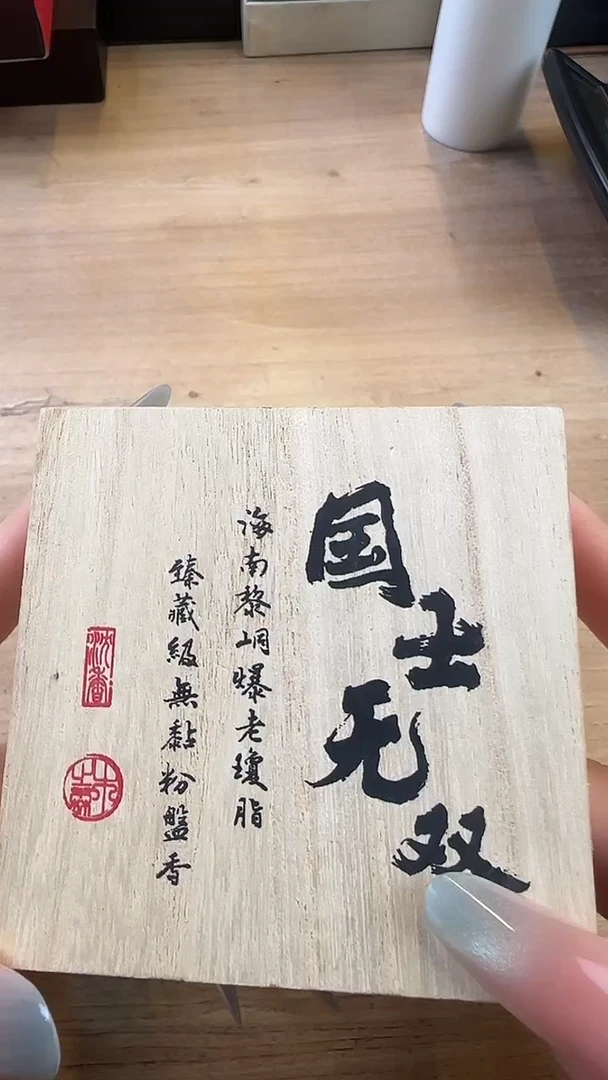 国士无双
海南黎峒爆老瓊脂
臻藏級無黏粉盤香
沈香